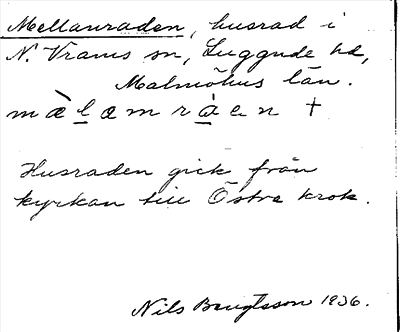 Mellanraden, husrad i
N. Vrams sn, Luggude hd,
Malmöhus län.
mæ̀lamrån +
Husraden gick från
kyrkan till Östra krok.
Nils Bengtsson 1936.